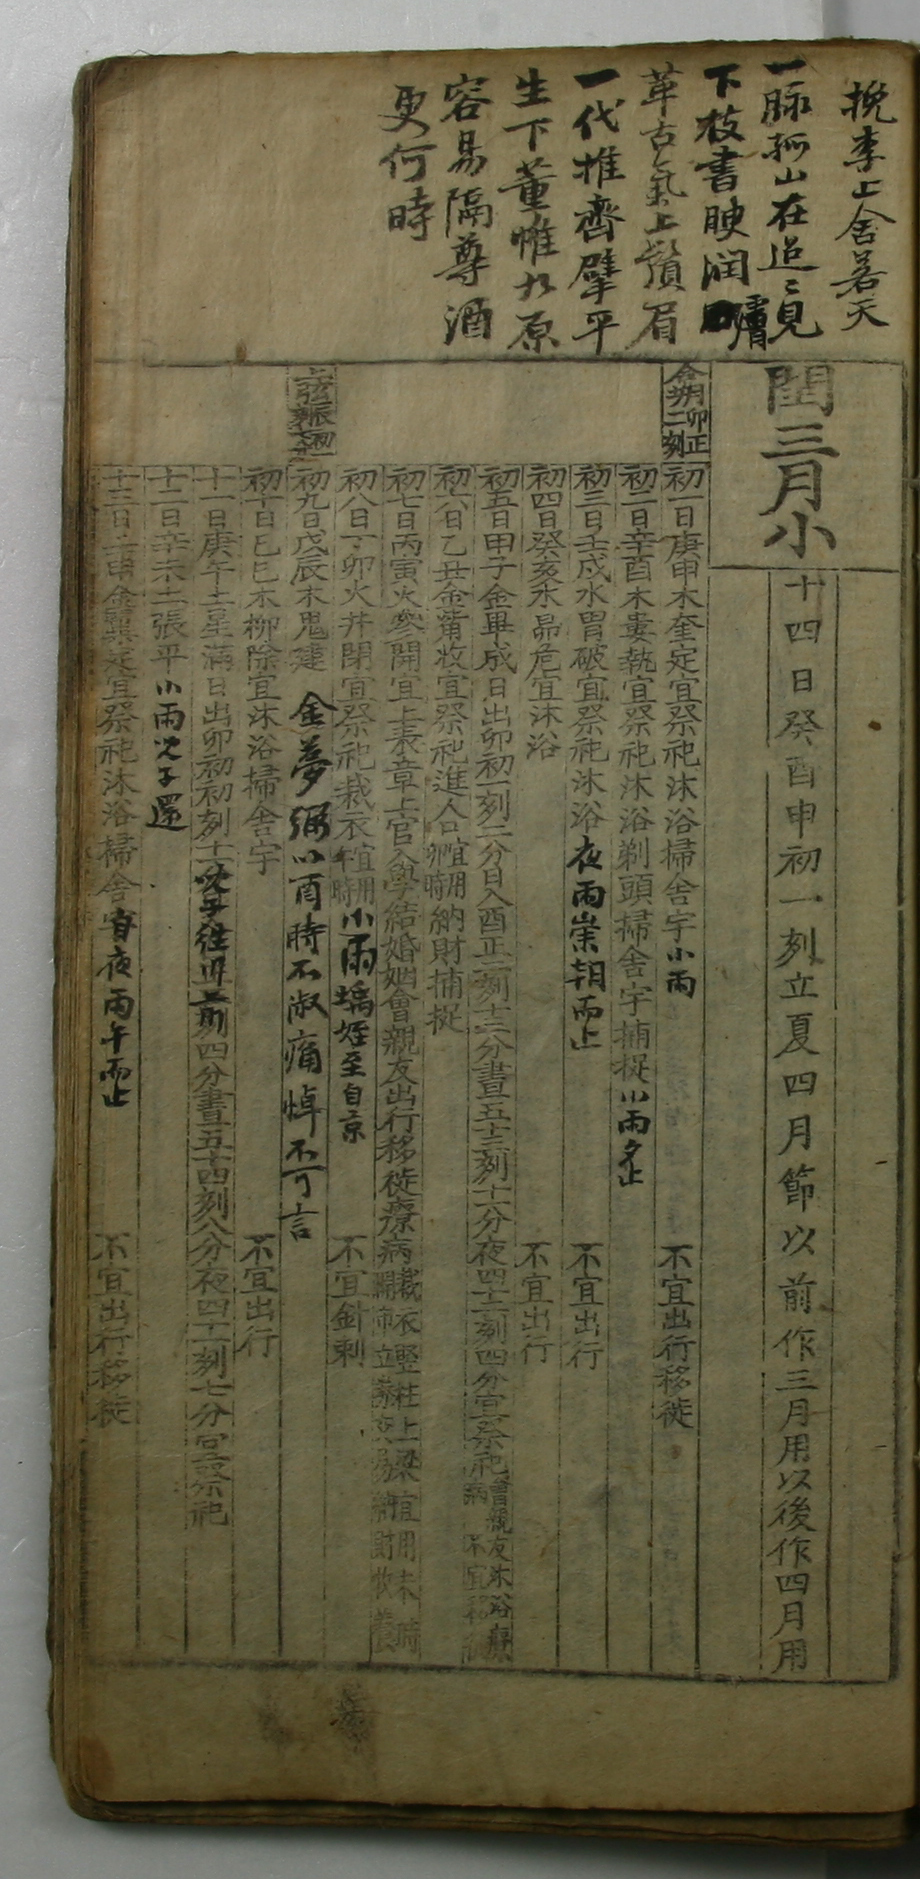 挽李上舍若天
一脉孤山在追〻見
下枝書腴潤膚
革古氣上鬚眉
一代推齊擘平
生下董惟九原
容易隔尊酒
更何時
閏三月小
十四日癸酉申初一刻立夏四月節以前作三月用以後作四月用
合朔月卯正二刻
初一日庚申木奎定宜祭祀沐浴掃舍宇小雨 不宜出行移徙
初二日辛酉木婁執宜祭祀沐浴剃頭掃舍宇捕捉小雨夕止
初三日壬戌水胃破宜祭祀沐浴夜雨崇朝而止 不宜出行
初四日癸亥水昴危宜沐浴 不宜出行
初五日甲子金畢成日出卯初一刻二分日入酉正二刻十三分晝五十三刻十一分夜四十二刻四分宜祭祀會親友沐浴療病不宜移徙
初六日乙丑金觜收宜祭祀進人口宜用卯時納財捕捉
初七日丙寅火參開宜上表章上官入學結婚姻會親友出行移徙療病裁衣豎柱上梁宜用未時開市立券交易納財牧養
初八日丁卯火井閉宜祭祀裁衣宜用午時小雨塢姪至自京 不宜針刺
上弦辰初一刻
初九日戊辰木鬼建 金夢弼以酉時不淑痛悼不可言
初十日己巳木柳除宜沐浴掃舍宇 不宜出行
十一日庚午土星滿日出卯初初刻十 四分晝五十四刻八分夜四十一刻七分宜祭祀
十二日辛未土張平小雨 還
十三日壬申金翼定宜祭祀沐浴掃舍宇夜雨午而止 不宜出行移徙